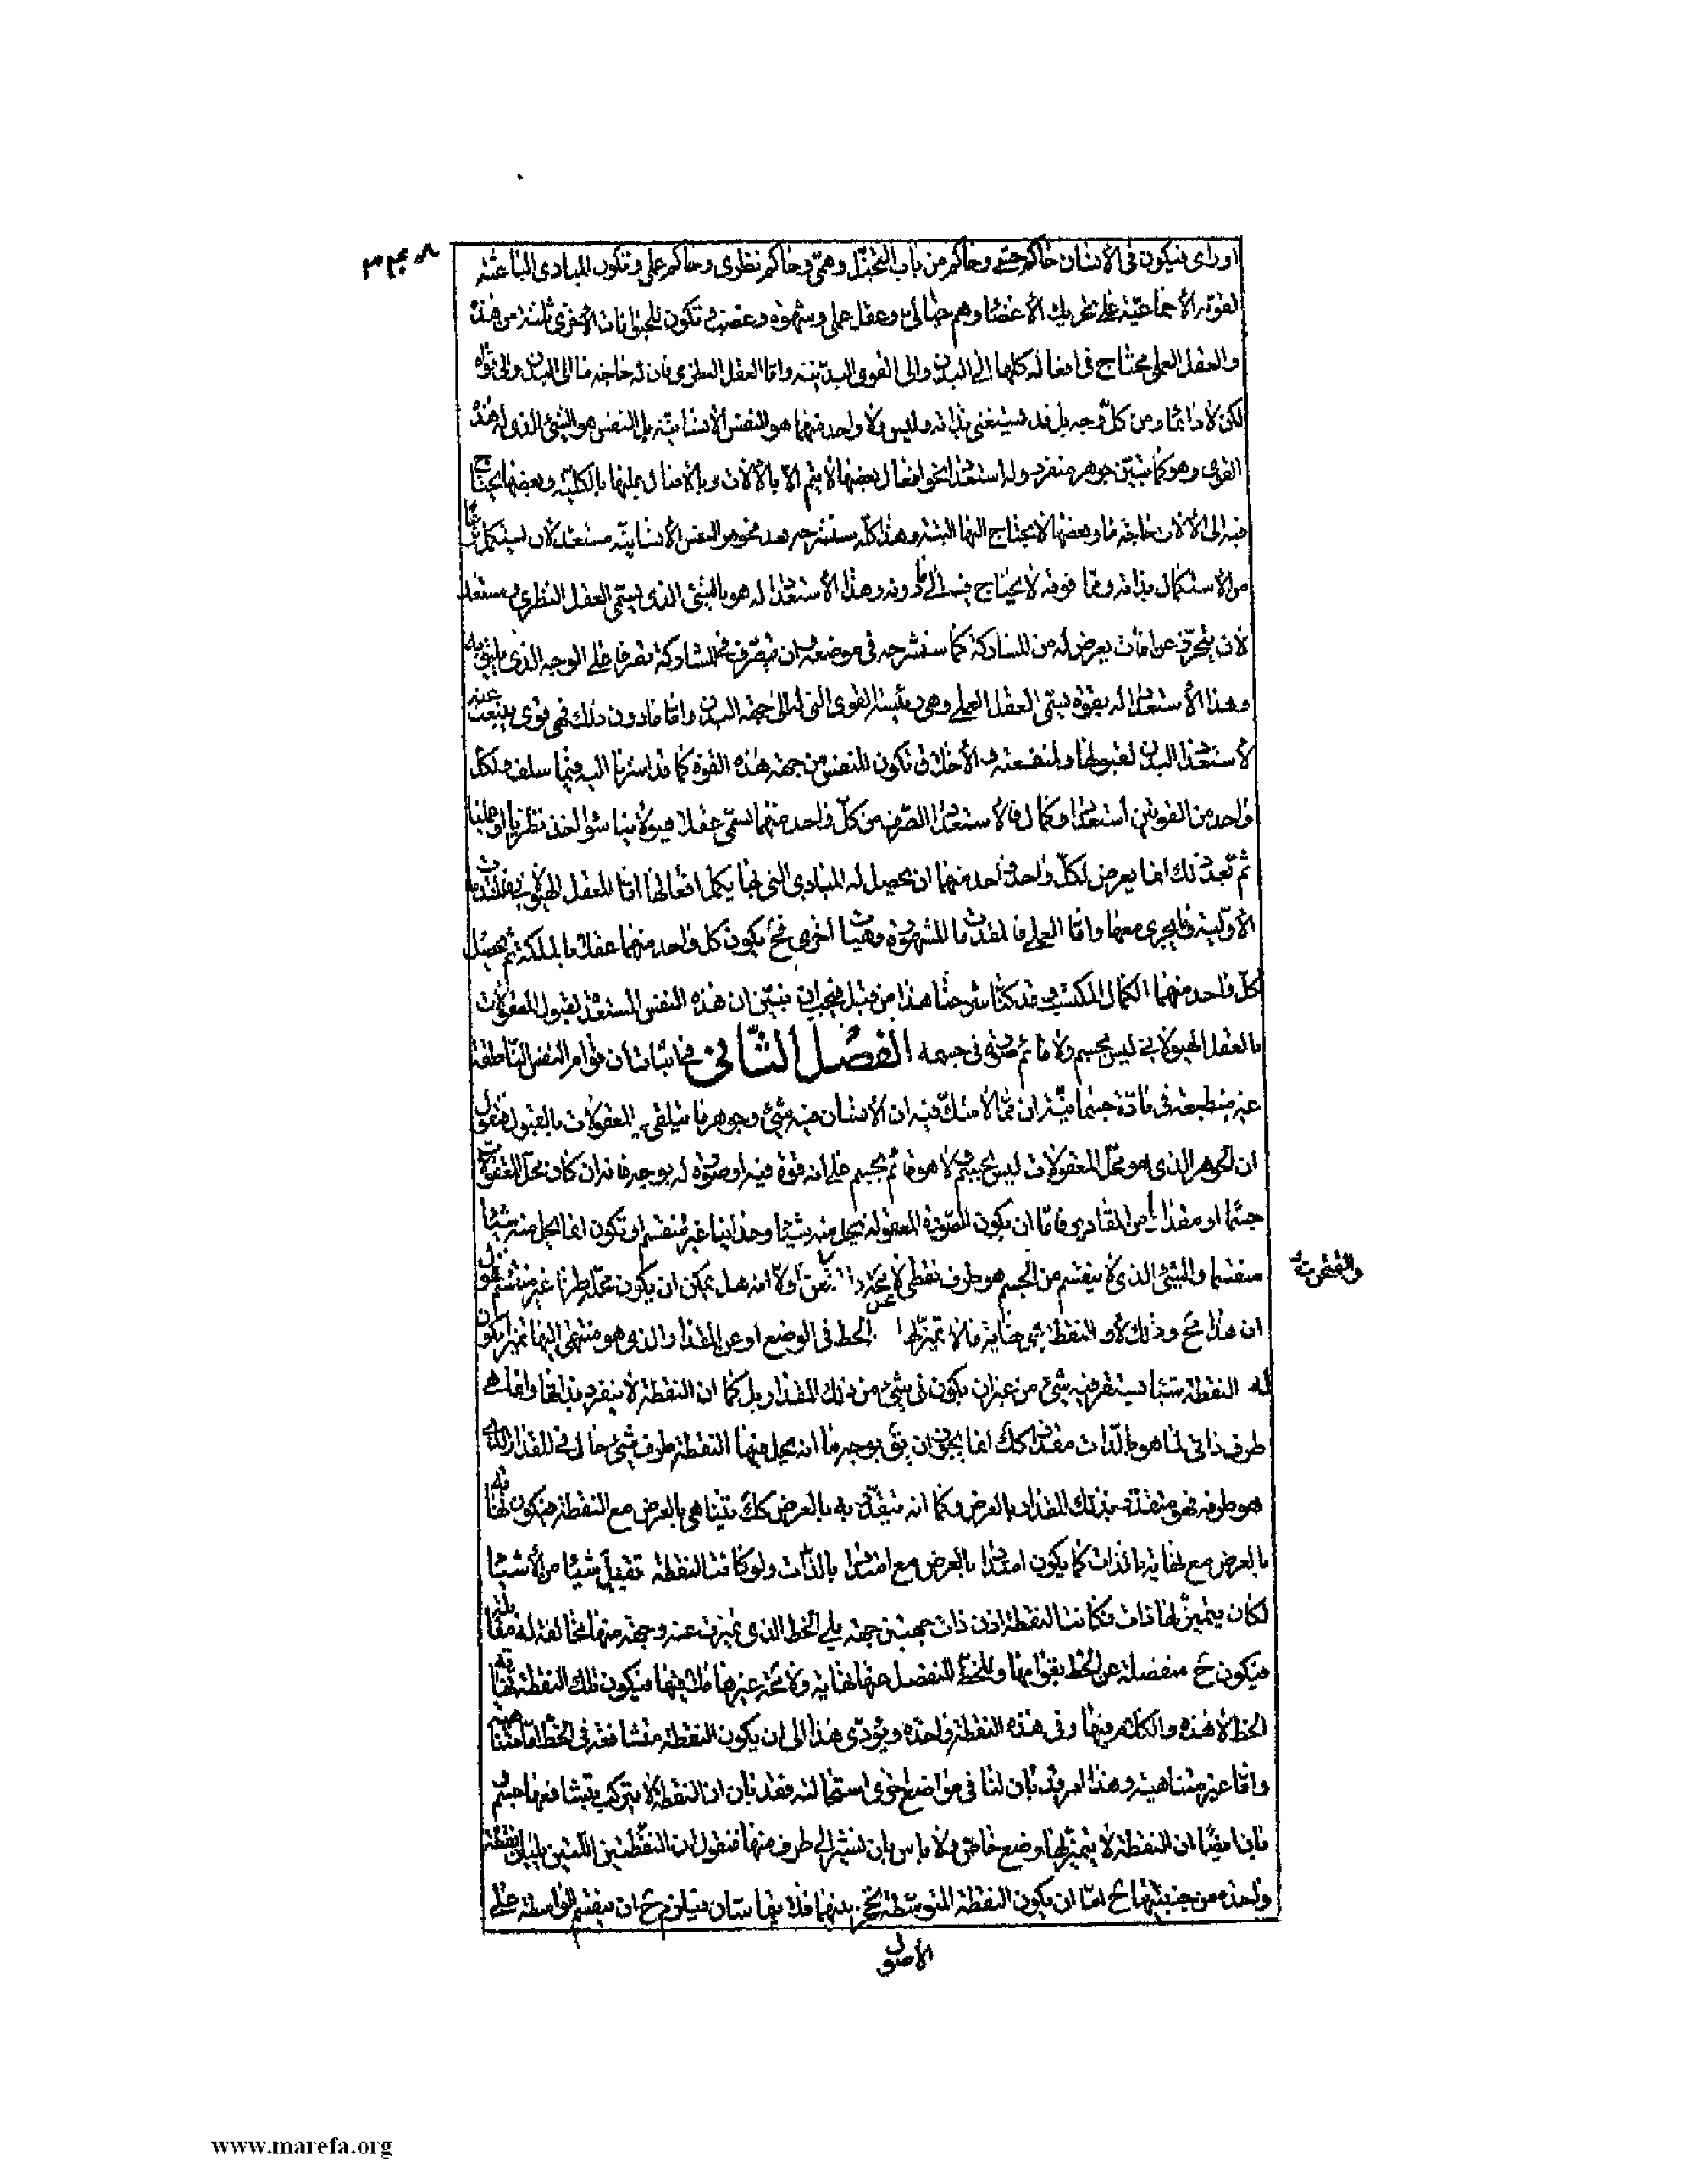 او رای فیکون فی الانسان حاکم حسی وحاکم من باب التخیل وهمی وحاکم نظری وحاکم عملی وتکون المبادی الباعثة
لقوته الاجماعیة علی تحریک الاعضا وهم خیالی وعقل عملی وشهوة وغضب وتکون للحیوانات الاخری ثلثة من هذه
والعقل العملی محتاج فی افعاله کلها الی البدن والی القوی البدنیة واما العقل النظری فان له حاجة ما الی البدن والی قواه
لکن لا دائما ومن کل وجه بل قد یستغنی بذاته ولیس ولا واحد منهما هو النفس الانسانیة بل النفس هو الشیء الذی له هذه
القوی وهو کما تبین جوهر منفرد وله استعداد نحو افعال بعضها لا یتم الا بالالات وبالاقبال علیها بالکلیة وبعضها یحتاج
فیه الی الالات حاجة ما وبعضها لا یحتاج الیها البتة وهذا کله سنشرحه بعد فجوهر النفس الانسانیة مستعد لان یستکمل نوعا
من الاستکمال بذاته ومما فوقه لا یحتاج فیه الی ما دونه وهذا الاستعداد له هو بالشیء الذی یسمی العقل النظری ومستعد
لان یتحرز عن افات یعرض له من المشارکة کما سنشرحه فی موضعه وان یتصرف فی المشارکة تصرفا علی الوجه الذی یلیق به
وهذا الاستعداد له بقوة تسمی العقل العملی وهی رئیسة القوی التی له الی جهة البدن واما ما دون ذلک فهی قوی ینبعث عنه
لاستعداد البدن لقبولها ولمنفعته والاخلاق تکون للنفس من جهة هذه القوة کما قد اشرنا الیه فیما سلف ولکل
واحد من القوتین استعداد وکمال فالاستعداد الصرف من کل واحد منهما تسمی عقلا هیولانیا سواء اخذ نظریا او عملیا
ثم بعد ذلک انما یعرض لکل واحد واحد منهما ان یحصل له المبادی التی بها یکمل افعالها اما للعقل النظری فالمقدمات
الاولیة وما یجری معها واما العملی فالمقدمات المشهورة وهیئات اخری فح یکون کل واحد منهما عقلا بالملکة ثم یحصل
لکل واحد منهما الکمال المکتسب وقد کنا شرحنا هذا من قبل فیجب ان نبین ان هذه النفس المستعدة لقبول المعقولات
بالعقل الهیولانی لیس بجسم ولا قائم صورة فی جسمه الفصل الثانی فی اثبات ان قوام النفس الناطقة
غیر منطبعة فی مادة جسمانیة ان مما لا شک فیه ان الانسان فیه شیء وجوهر ما یتلقی المعقولات بالقبول فنقول
ان الجوهر الذی هو محل المعقولات لیس بجسم ولا هو قائم بجسم علی انه قوة فیه او صورة له بوجه فانه ان کان محل المعقولات
جسما او مقدارا من المقادیر فاما ان یکون الصورة المعقولة تحل منه شیئا وحدانیا غیر منقسم او تکون انما یحل منه شیئا
منقسما والشیء الذی لا ینقسم من الجسم هو طرف نقطی لا محة ولنمتحن اولا انه هل یمکن ان یکون محله طرفا غیر منقسم فنقول
ان هذا مح وذلک لان النقطة هی نهایة ما لا تمیز لها عن الخط فی الوضع او عن المقدار الذی هو منتهی الیها تمیزا یکون
له النقطة شیئا یستقر فیه شیء من غیر ان یکون فی شیء من ذلک المقدار بل کما ان النقطة لا ینفرد بذاتها وانما هی
طرف ذاتی لما هو بالذات مقدار کک انما یجوز ان یق بوجه ما انه یحل فیها النقطة طرف شیء حال فی المقدار الذی
هو طرفه فهو متقدر بذلک المقدار بالعرض وکما انه یتقدر به بالعرض کک یتناهی بالعرض مع النقطة فیکون نهایة
بالعرض مع نهایة بالذات کما یکون امتداد بالعرض مع امتداد بالذات ولو کانت النقطة تقبل شیئا من الاشیاء
لکان یتمیز لها ذات فکانت النقطة اذن ذات جهتین جهة یلی الخط الذی تمیزت عنه وجهة منها مخالفة له مقابلة
فیکون ح منفصلة عن الخط بقوامها وللخط المنفصل عنها نهایة ولا محة غیرها فلا فیها فیکون تلک النقطة نهایة
الخط لا هذه والکلام فیها وفی هذه النقطة واحدة ویؤدی هذا الی ان یکون النقطة متشافعة فی الخط اما متناهیة
واما غیر متناهیة وهذا امر قد بان لنا فی مواضع اخری استحالته فقد بان ان النقطة لا یترکب بتشافعها جسم
بان ایضا ان النقطة لا یتمیز لها وضع خاص ولا باس بان نشیر الی طرف منها فنقول ان النقطتین اللتین یلیان نقطة
واحدة من جنبیتها ح اما ان یکون النقطة المتوسطة تحجز بینهما فلا یتماسان فیلزم ح ان ینقسم الواسطة علی
الاصول